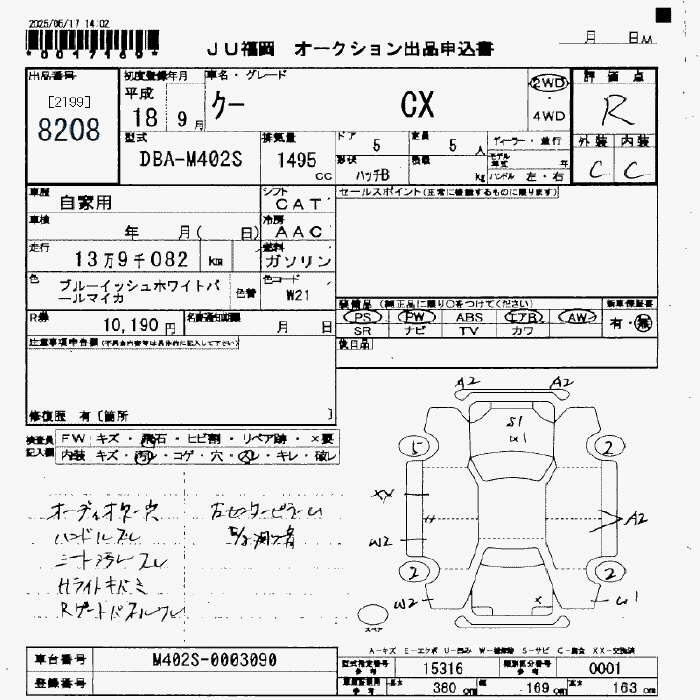 2025/06/17 14:02
*0047169*
ＪＵ福岡 オークション出品申込書
月 日
出品番号
[2199]
8208
初度登録年月
平成
18 9 月
車名・グレード
クー CX
2WD
4WD
評価点
R
外装 内装
C C
型式
DBA-M402S
排気量
1495 cc
ドア 5
定員 5 人
形状 ハッチB
積載 kg
ディーラー・並行
モデル年式 年
ハンドル 左・右
車歴 自家用
シフト CAT
セールスポイント(正常に機能するものに限ります)
車検 年 月( 日)
冷房 AAC
走行 13万9千082 km
燃料 ガソリン
色 ブルーイッシュホワイトパールマイカ
色替
色コード W21
装備品 (純正品に限り○をつけてください)
新車保証書
PS PW ABS エアB AW
有・無
SR ナビ TV カワ
R券 10,190 円
名義変更期限 月 日
後日品
注意事項申告欄
修復歴 有 [箇所 ]
検査員記入欄
FW キズ・飛石・ヒビ割・リペア跡・×要
内装 キズ・汚レ・コゲ・穴・スレ・キレ・破レ
ハンドルスレ
シート汚レスレ
A2 A2
S1
5 2
XX
A2
W2
2 2
W2
X
スペア
A-キズ E-エクボ U-凹み W-補修跡 S-サビ C-腐食 XX-交換済
車台番号 M402S-0003090
登録番号
型式指定番号 参考 15316
類別区分番号 参考 0001
長さ 380 cm 幅 169 cm 高さ 163 cm